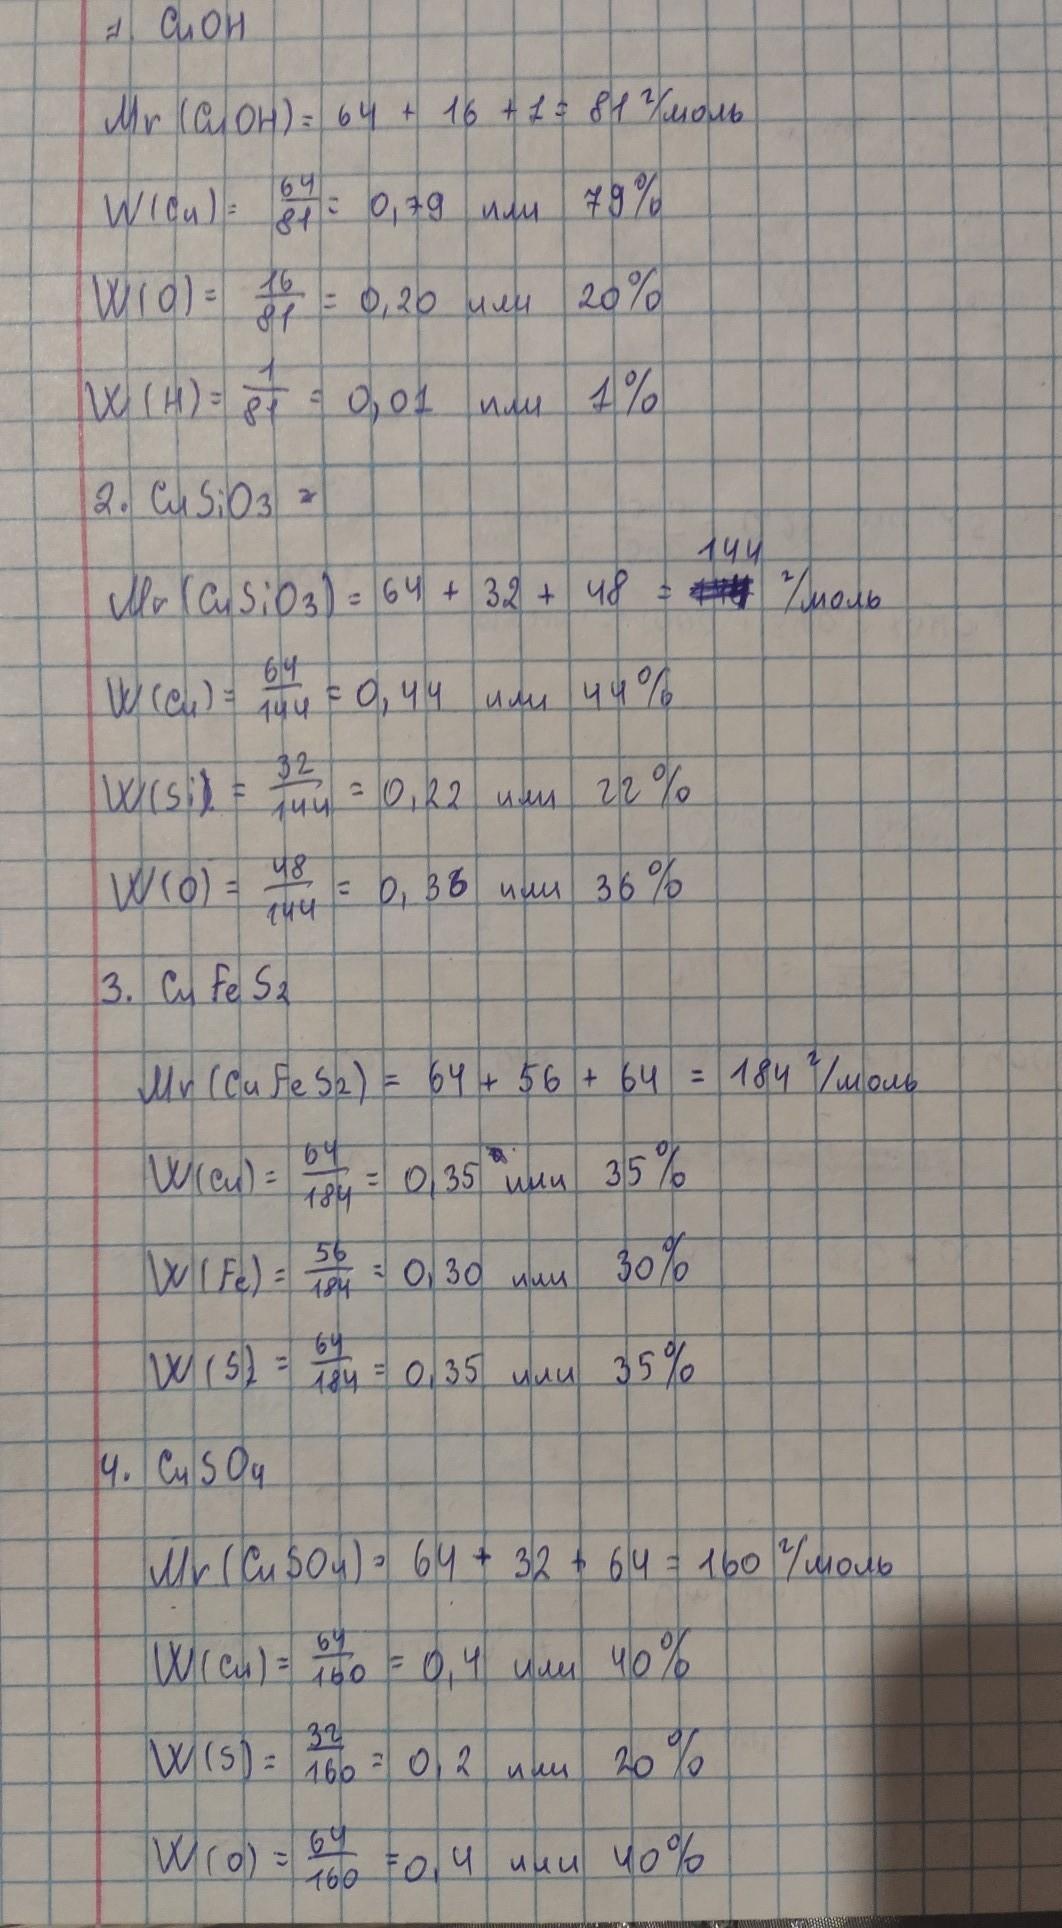 1. CuOH
Mr (CuOH) = 64 + 16 + 1 = 81 г/моль
W(Cu) = 64/81 = 0,79 или 79%
W(O) = 16/81 = 0,20 или 20%
W(H) = 1/81 = 0,01 или 1%
2. CuSiO3 =
Mr (CuSiO3) = 64 + 32 + 48 = 144 г/моль
W(Cu) = 64/144 = 0,44 или 44%
W(Si) = 32/144 = 0,22 или 22%
W(O) = 48/144 = 0,36 или 36%
3. CuFeS2
Mr (CuFeS2) = 64 + 56 + 64 = 184 г/моль
W(Cu) = 64/184 = 0,35 или 35%
W(Fe) = 56/184 = 0,30 или 30%
W(S) = 64/184 = 0,35 или 35%
4. CuSO4
Mr (CuSO4) = 64 + 32 + 64 = 160 г/моль
W(Cu) = 64/160 = 0,4 или 40%
W(S) = 32/160 = 0,2 или 20%
W(O) = 64/160 = 0,4 или 40%